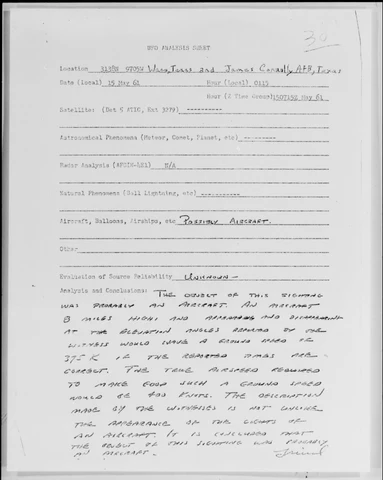 34
UFO ANALYSIS SHEET
Location 3138N 9705W Waco, Texas and James Connally AFB, Texas
Date (Local) 15 May 61 Hour (Local) 0115
Hour (Z Time Group) 150715Z May 61
Satellite: (Det 5 ATIC, Ext 3279) ----------
Astronomical Phenomena (Meteor, Comet, Planet, etc) ----------
Radar Analysis (AFCIN-4E1) N/A
Natural Phenomena (Ball Lightning, etc) ----------
Aircraft, Balloons, Airships, etc Possibly Aircraft.
Other
Evaluation of Source Reliability Unknown -
Analysis and Conclusions: The object of this sighting
was probably an aircraft. An aircraft
8 miles high and appearing and disappearing
at the elevation angles reported by the
witness would have a ground speed of
375 K if the reported times are
correct. The true airspeed required
to make good such a ground speed
would be 400 knots. The description
made by the witnesses is not unlike
the appearance of the lights of
an aircraft. It is concluded that
the object of this sighting was probably
an aircraft.